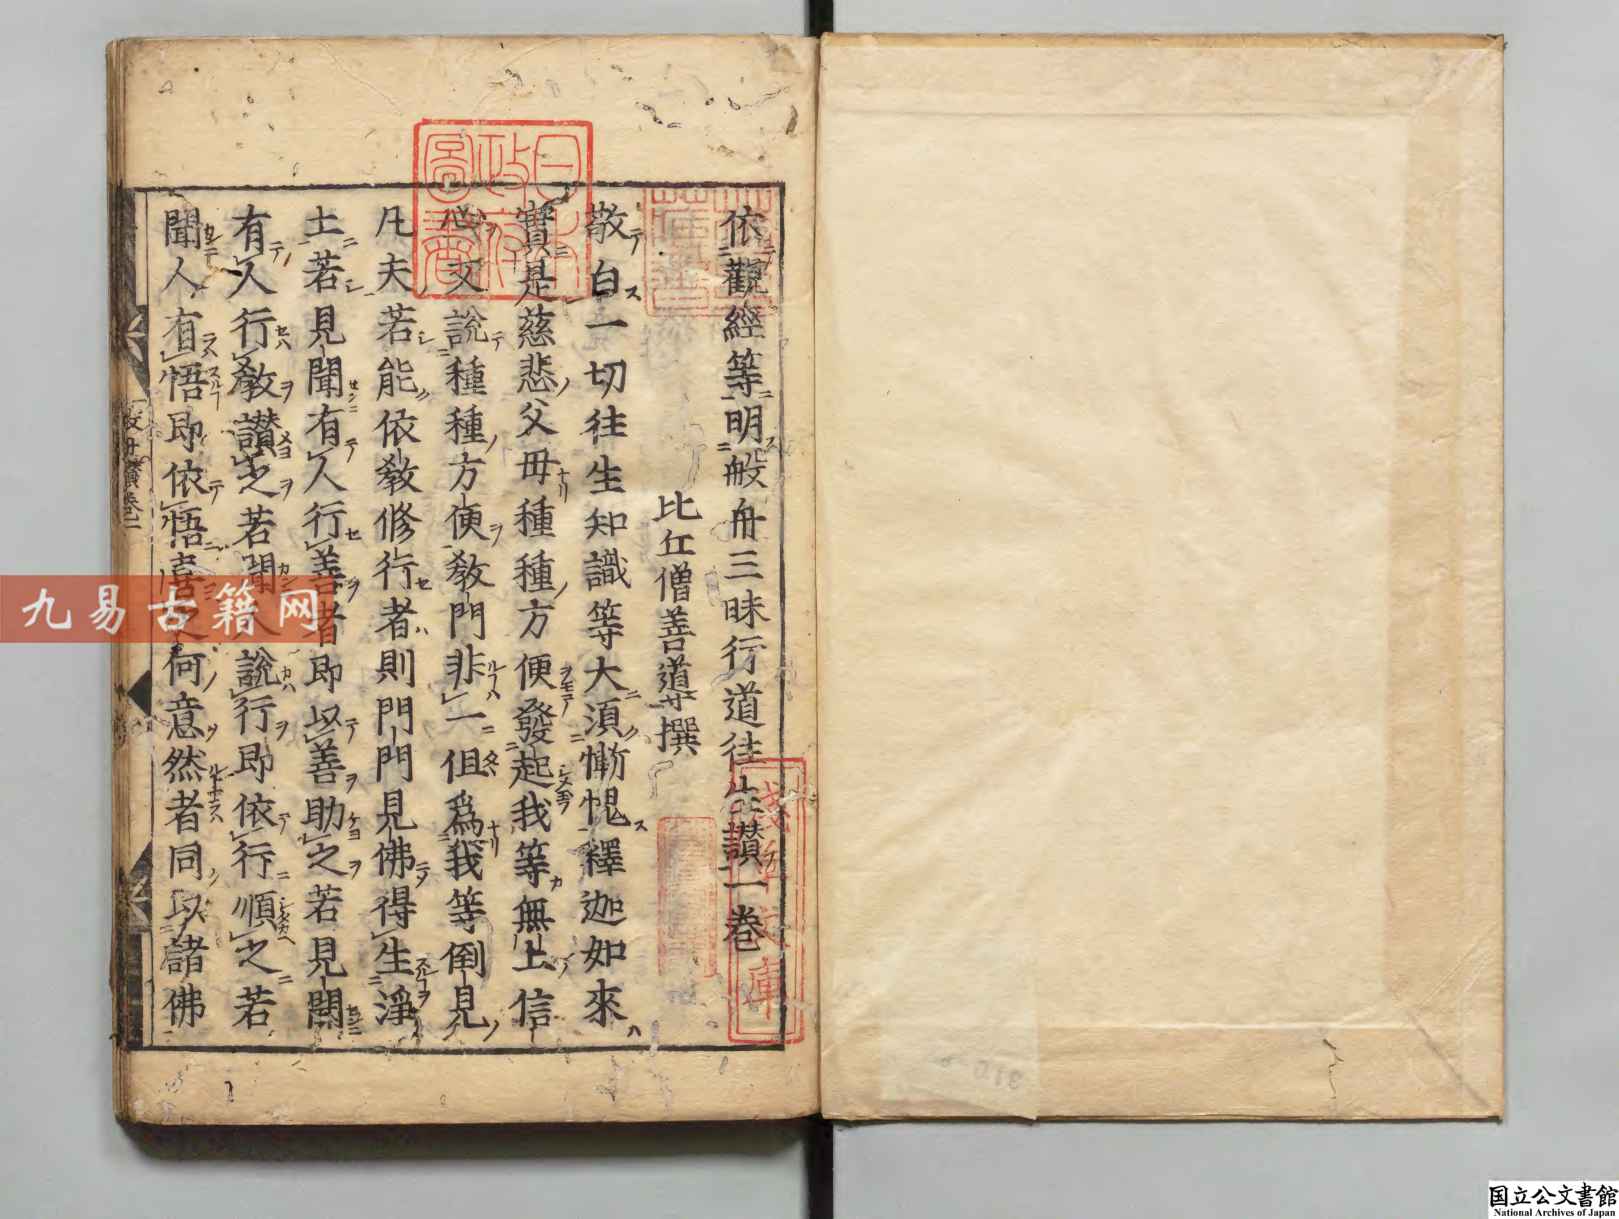 依觀經等明般舟三昧行道往生讃一卷
比丘僧善導撰
敬白一切往生知識等大湏慚愧釋迦如來
實是慈悲父母種種方便發起我等無上信
心又說種種方便敎門非一但爲我等倒見
凡夫若能依敎修行者則門門見佛得生淨
土若見聞有人行善者即以善助之若見聞
有人行敎讃之若聞人說行即依行順之若
聞人有悟即依悟喜之何意然者同以諸佛
日本政府圖書
淺草文庫
九易古籍网
国立公文書館
National Archives of Japan